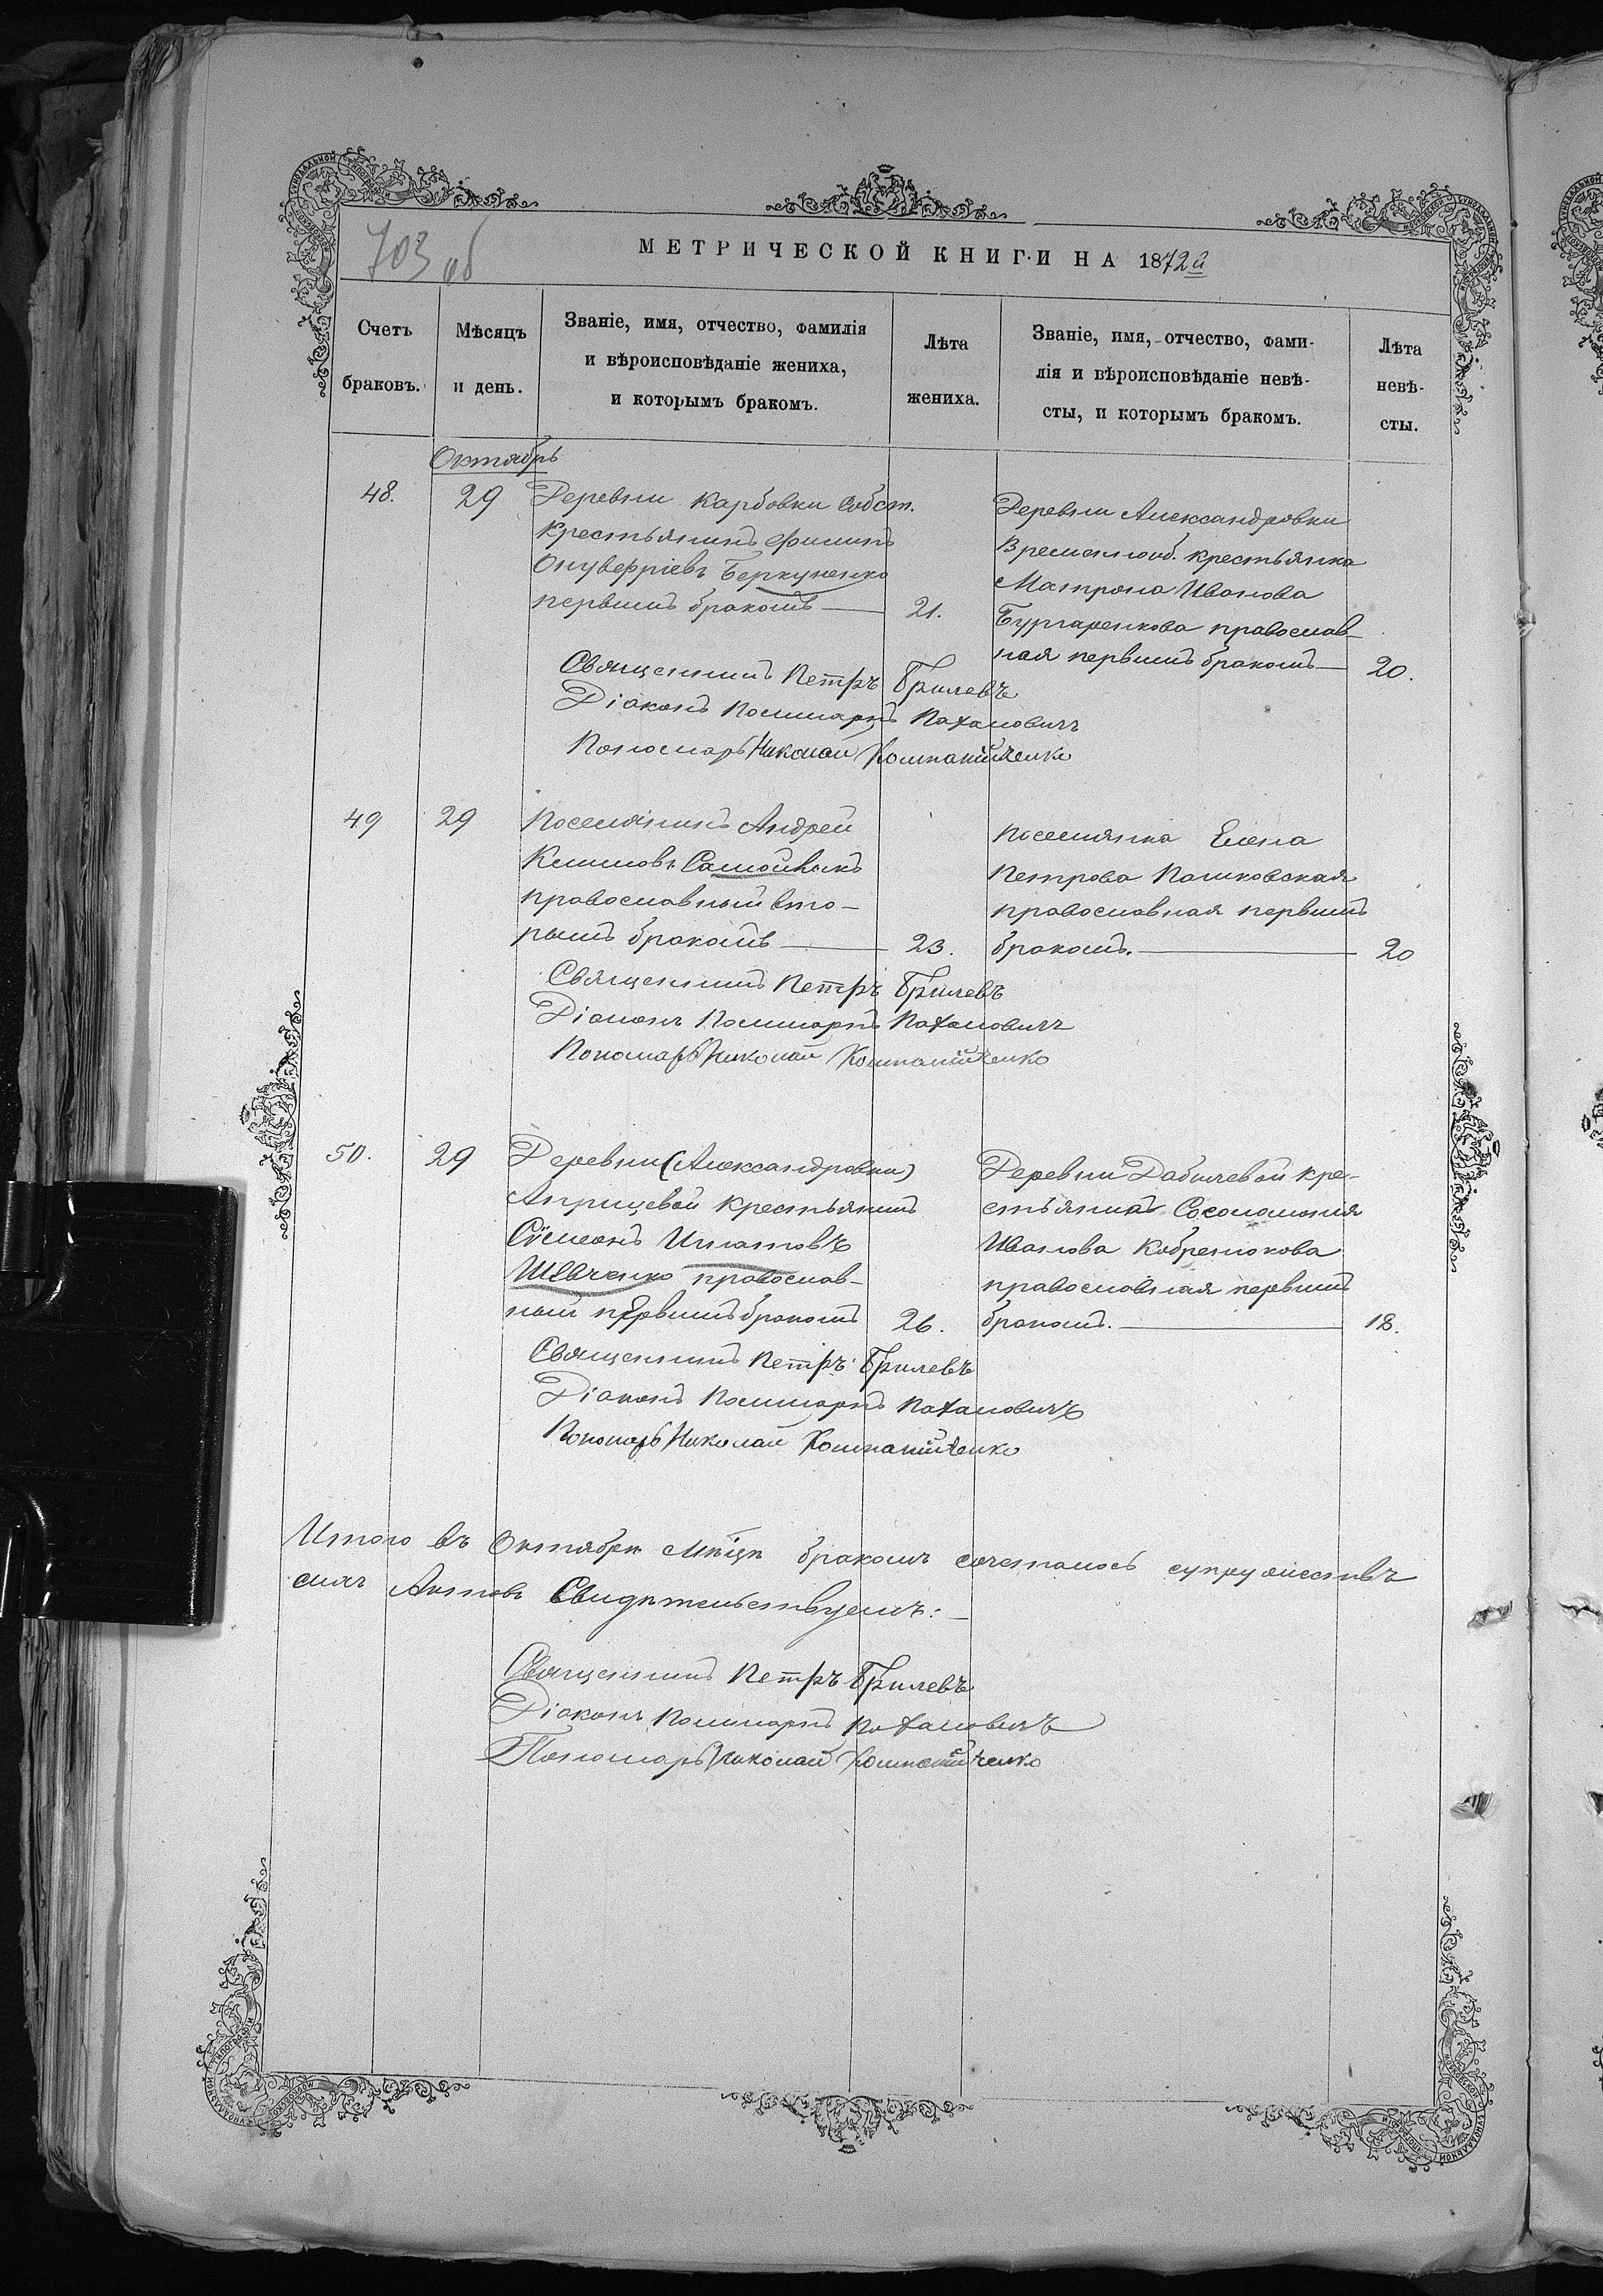 703 об
МЕТРИЧЕСКОЙ КНИГИ НА 1872 й
Счетъ
браковъ.
Мѣсяцъ
и день.
Званіе, имя, отчество, фамилія
и вѣроисповѣданіе жениха,
и которымъ бракомъ.
Лѣта
жениха.
Званіе, имя, отчество, фами-
лія и вѣроисповѣданіе невѣ-
сты, и которымъ бракомъ.
Лѣта
невѣ-
сты.
Октябрь
48.
29
Деревни Карбовки Собст.
крестьянинъ Филипъ
Онуфріевъ Беркуненко
первымъ бракомъ —
21.
Деревни Александровки
Временнооб. крестьянка
Матрона Иванова
Бургаренкова православ-
ная первымъ бракомъ —
20.
Священникъ Петръ Брилевъ
Діаконъ Поликарпъ
Пономарь Николай Компанійченко
49
29
Поселянинъ Андрей
Климовъ Самойленко
православный вто-
рымъ бракомъ —
23.
Поселянка Елена
Петрова Пашковская
православная первымъ
бракомъ. —
20
Священникъ Петръ Брилевъ
Діаконъ Поликарпъ
Пономарь Николай Компанійченко
50.
29
Деревни (Александровки)
Априцевой крестьянинъ
Сѵмеонъ Игнатовъ
Шевченко православ-
ный первымъ бракомъ
26.
Деревни Добилевой кре-
стьянка Соломонія
Иванова Кобренюкова
православная первымъ
бракомъ. —
18.
Священникъ Петръ Брилевъ
Діаконъ Поликарпъ
Пономарь Николай Компанійченко
Итого въ Октябрѣ Мѣсяцѣ бракомъ сочеталось супружествъ
Актовъ Свидѣтельствуемъ: —
Священникъ Петръ Брилевъ
Діаконъ Поликарпъ
Пономарь Николай Компанійченко